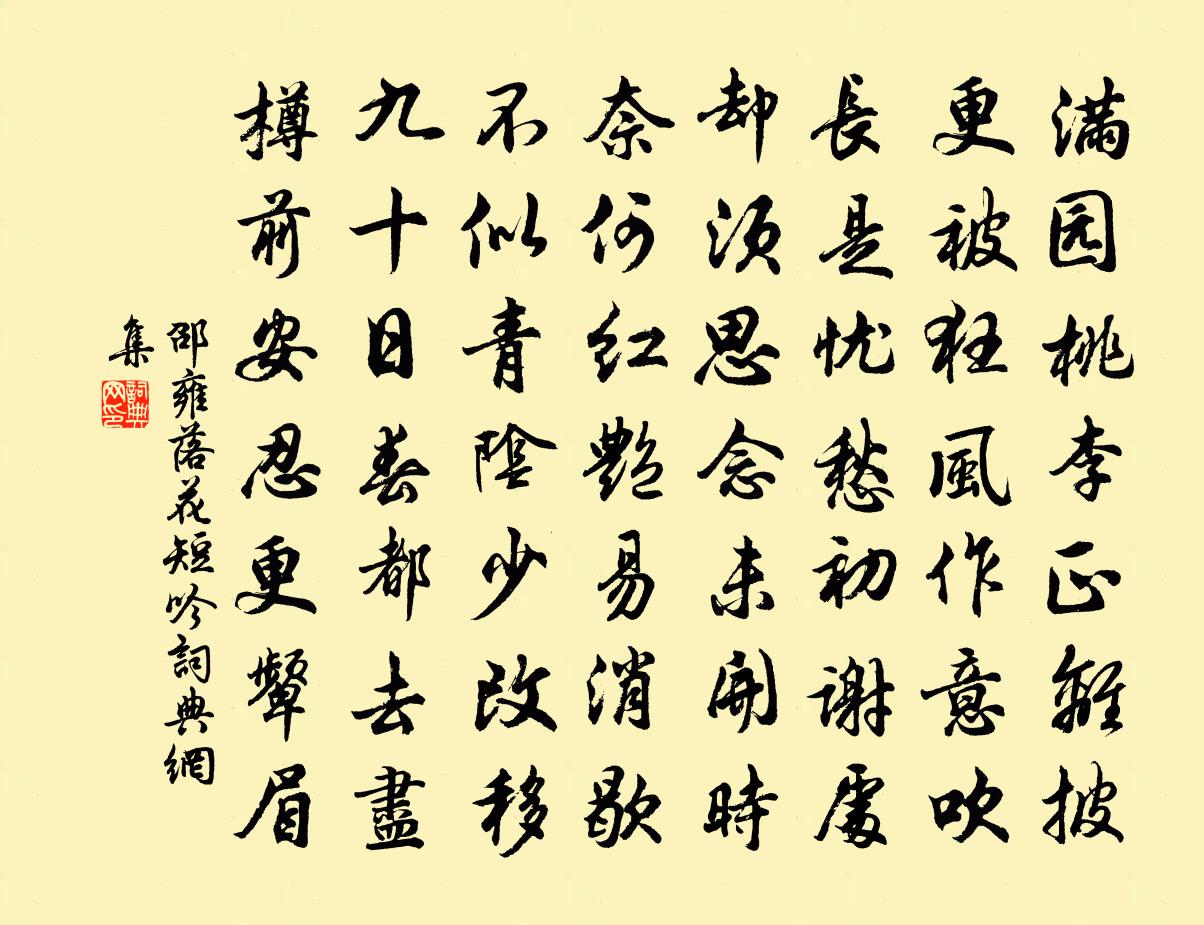 滿园桃李正離披
更被狂風作意吹
長是忧愁初谢處
却須思念未開時
奈何红艷易消歇
不似青陰少改移
九十日春都去盡
樽前安忍更顰眉
邵雍落花短吟詞典網
集
詞典網印